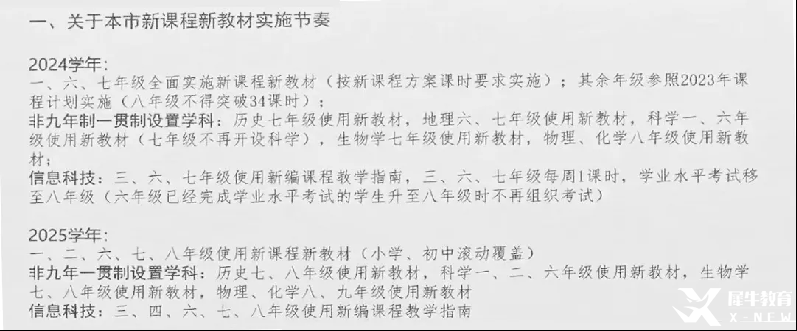 一、关于本市新课程新教材实施节奏
2024学年：
一、六、七年级全面实施新课程新教材（按新课程方案课时要求实施）；其余年级参照2023年课
程计划实施（八年级不得突破34课时）；
非九年制一贯制设置学科：历史七年级使用新教材，地理六、七年级使用新教材，科学一、六年
级使用新教材（七年级不再开设科学），生物学七年级使用新教材，物理、化学八年级使用新教
材；
信息科技：三、六、七年级使用新编课程教学指南，三、六、七年级每周1课时，学业水平考试移
至八年级（六年级已经完成学业水平考试的学生升至八年级时不再组织考试）
2025学年：
一、二、六、七、八年级使用新课程新教材（小学、初中滚动覆盖）
非九年一贯制设置学科：历史七、八年级使用新教材，科学一、二、六年级使用新教材，生物学
七、八年级使用新教材，物理、化学八、九年级使用新教材
信息科技：三、四、六、七、八年级使用新编课程教学指南
犀牛教育
X-NEW